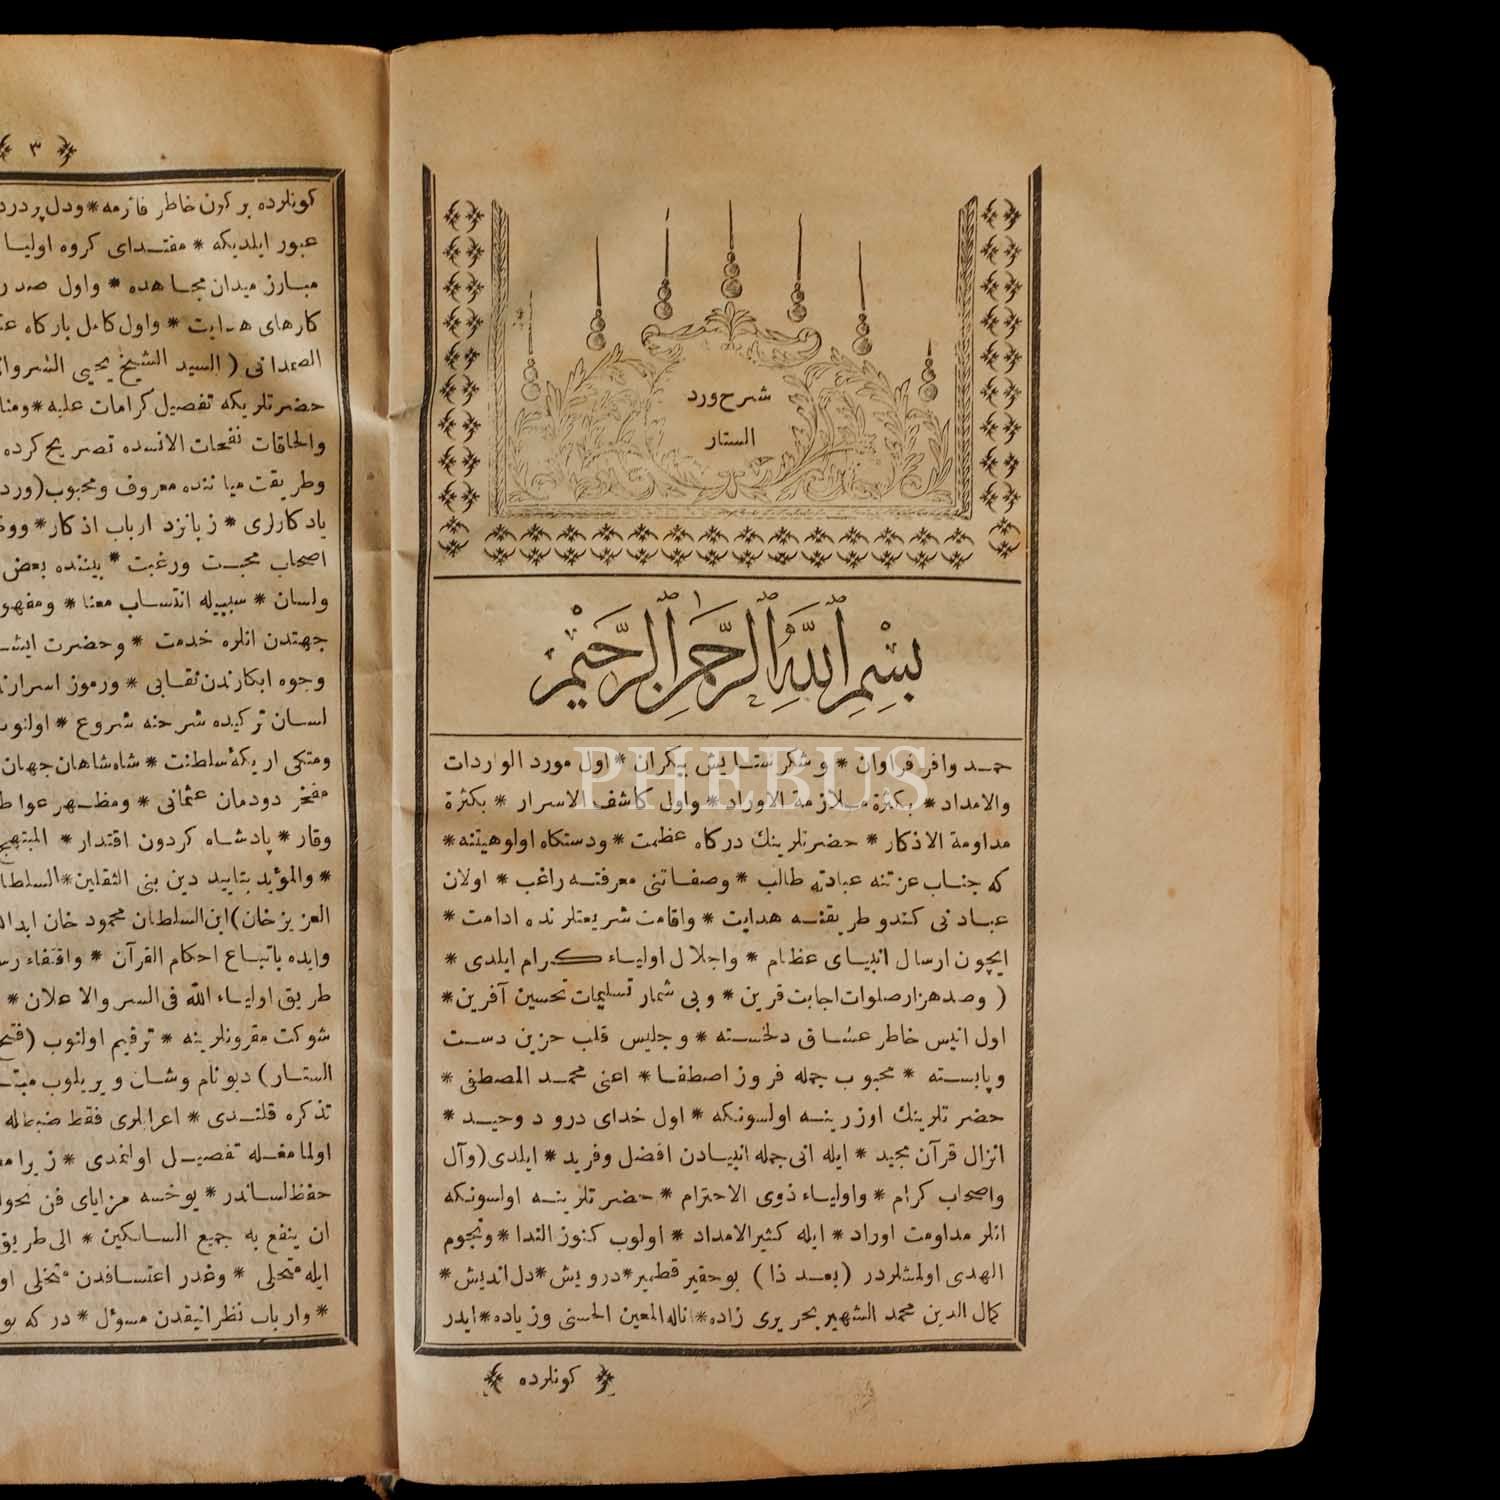 شرح ورد
الستار
بسم الله الرحمن الرحيم
حمد وافر فراوان * وشكر ستايش بيكران * اول مورد الواردات
والامداد * بكثرة ملازمة الاوراد * واول كاشف الاسرار * بكثرة
مداومة الاذكار * حضرتلرينك دركاه عظمت * ودستكاه اولوهيتنه *
كه جناب عزتنه عبادته طالب * وصفاتنى معرفتنه راغب * اولان
عبادنى كندو طريقنه هدايت * واقامت شريعتلرنده ادامت *
ايچون ارسال انبياى عظام * واجلال اولياء كرام ايلدى *
( وصدهزار صلوات اجابت قرين * وبى شمار تسليمات تحسين آفرين *
اول انيس خاطر عشاق دلخسته * وجليس قلب حزين دست
وپابسته * محبوب جمله فروز اصطفا * اعنى محمد المصطفى *
حضرتلرينك اوزرينه اولسونكه * اول خداى درود وحيد *
انزال قرآن مجيد * ايله انى جمله انبيادن افضل وفريد * ايلدى (وآل
واصحاب كرام * واولياء ذوى الاحترام * حضرتلرينه اولسونكه
انلر مداومت اوراد * ايله كثير الامداد * اولوب كنوز الندا * ونجوم
الهدى اولمشلردر (بعد ذا) بوحقير قطمير * درويش * دل انديش *
كمال الدين محمد الشهير بحريرى زاده * اناله المعين الحسنى وزياده * ايدر
كونلرده
PHEBUS
٣
كونلرده بركون خاطر فاترمه * ودل پردرد
عبور ايلديكه * مقتداى كروه اوليا
مبارز ميدان مجاهده * واول صدر
كارهاى هدايت * واول كامل باركاه
الصمدانى (السيد الشيخ يحيى الشروانى
حضرتلريكه تفصيل كرامات عليه * ومنا
والحاقات نفحات الانسده تصريح كرده
وطريقت مياننده معروف ومحبوب (ورد
يادكارلرى * زبانزد ارباب اذكار * وو
اصحاب محبت ورغبت * بيننده بعض
ولسان * سببيله انتساب معنا * ومفهو
جهتدن انلره خدمت * وحضرت
وجوه ابكارندن نقابى * ورموز اسرار
لسان تركيده شرحنه شروع * اولنوب
ومتكى اريكۀ سلطنت * شاه شاهان جهان
مفخر دودمان عثمانى * ومظهر عواط
وقار * پادشاه كردون اقتدار * المبتهج
* والمؤيد بتاييد دين بنى الثقلين * السلطا
العزيز خان) ابن السلطان محمود خان
وايده باتباع احكام القرآن * واقتفاء
طريق اولياء الله فى السر والاعلان *
شوكت مقرونلرينه * ترقيم اولنوب (فتح
الستار) ديونام وشان ويريلوب
تذكره قلندى * اعرابلرى فقط ضبطله
اولمامغله تفصيل اولنمدى * زيرا
حفظ لساندر * يوخسه مزاياى فن
ان ينفع به جميع السالكين * الى طريق
ايله متحلى * وغدر اعتسافدن متخلى
* وارباب نظر انيقدن مسؤل * دركه بو